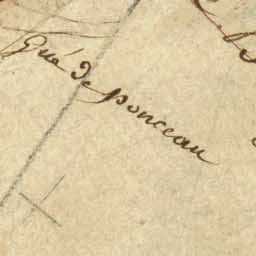 Gué de ponceau